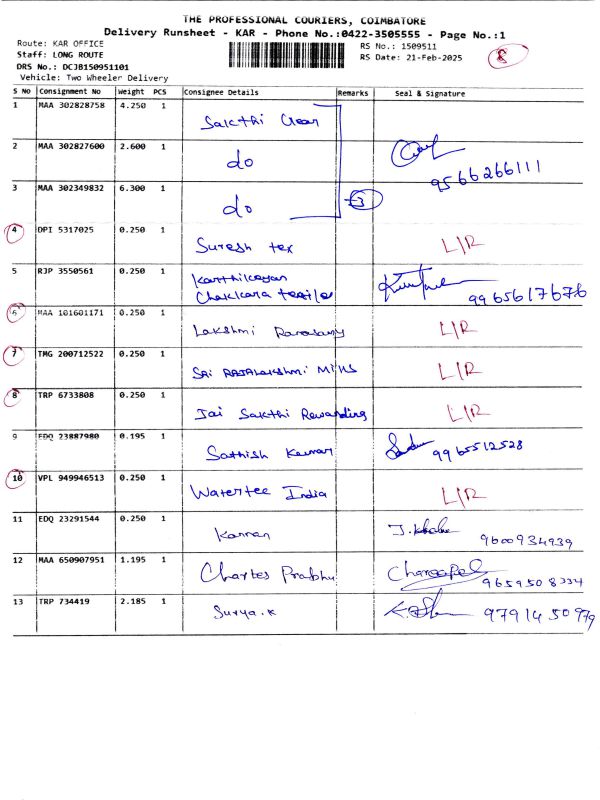 THE PROFESSIONAL COURIERS, COIMBATORE
Delivery Runsheet - KAR - Phone No.:0422-3505555 - Page No.:1
Route: KAR OFFICE
Staff: LONG ROUTE
DRS No.: DCJB150951101
Vehicle: Two Wheeler Delivery
RS No.: 1509511
RS Date: 21-Feb-2025
8
S No Consignment No Weight PCS Consignee Details Remarks Seal & Signature
1 MAA 302828758 4.250 1 Sakthi Gear
2 MAA 302827600 2.600 1 do 9566266111
3 MAA 302349832 6.300 1 do 3
4 DPI 5317025 0.250 1 Suresh tex L/R
5 RJP 3550561 0.250 1 Karthikeyan
Chakkara textile 9965617676
6 MAA 101601171 0.250 1 Lakshmi L/R
7 TMG 200712522 0.250 1 SRI RAJALakshmi Mills L/R
8 TRP 6733808 0.250 1 Jai Sakthi Rewinding L/R
9 EDQ 23887980 0.195 1 Sathish Kumar 9965512528
10 VPL 949946513 0.250 1 Watertec India L/R
11 EDQ 23291544 0.250 1 Kannan 9600934939
12 MAA 650907951 1.195 1 Charles Prabhu 9659508334
13 TRP 734419 2.185 1 Surya.K 9791450979